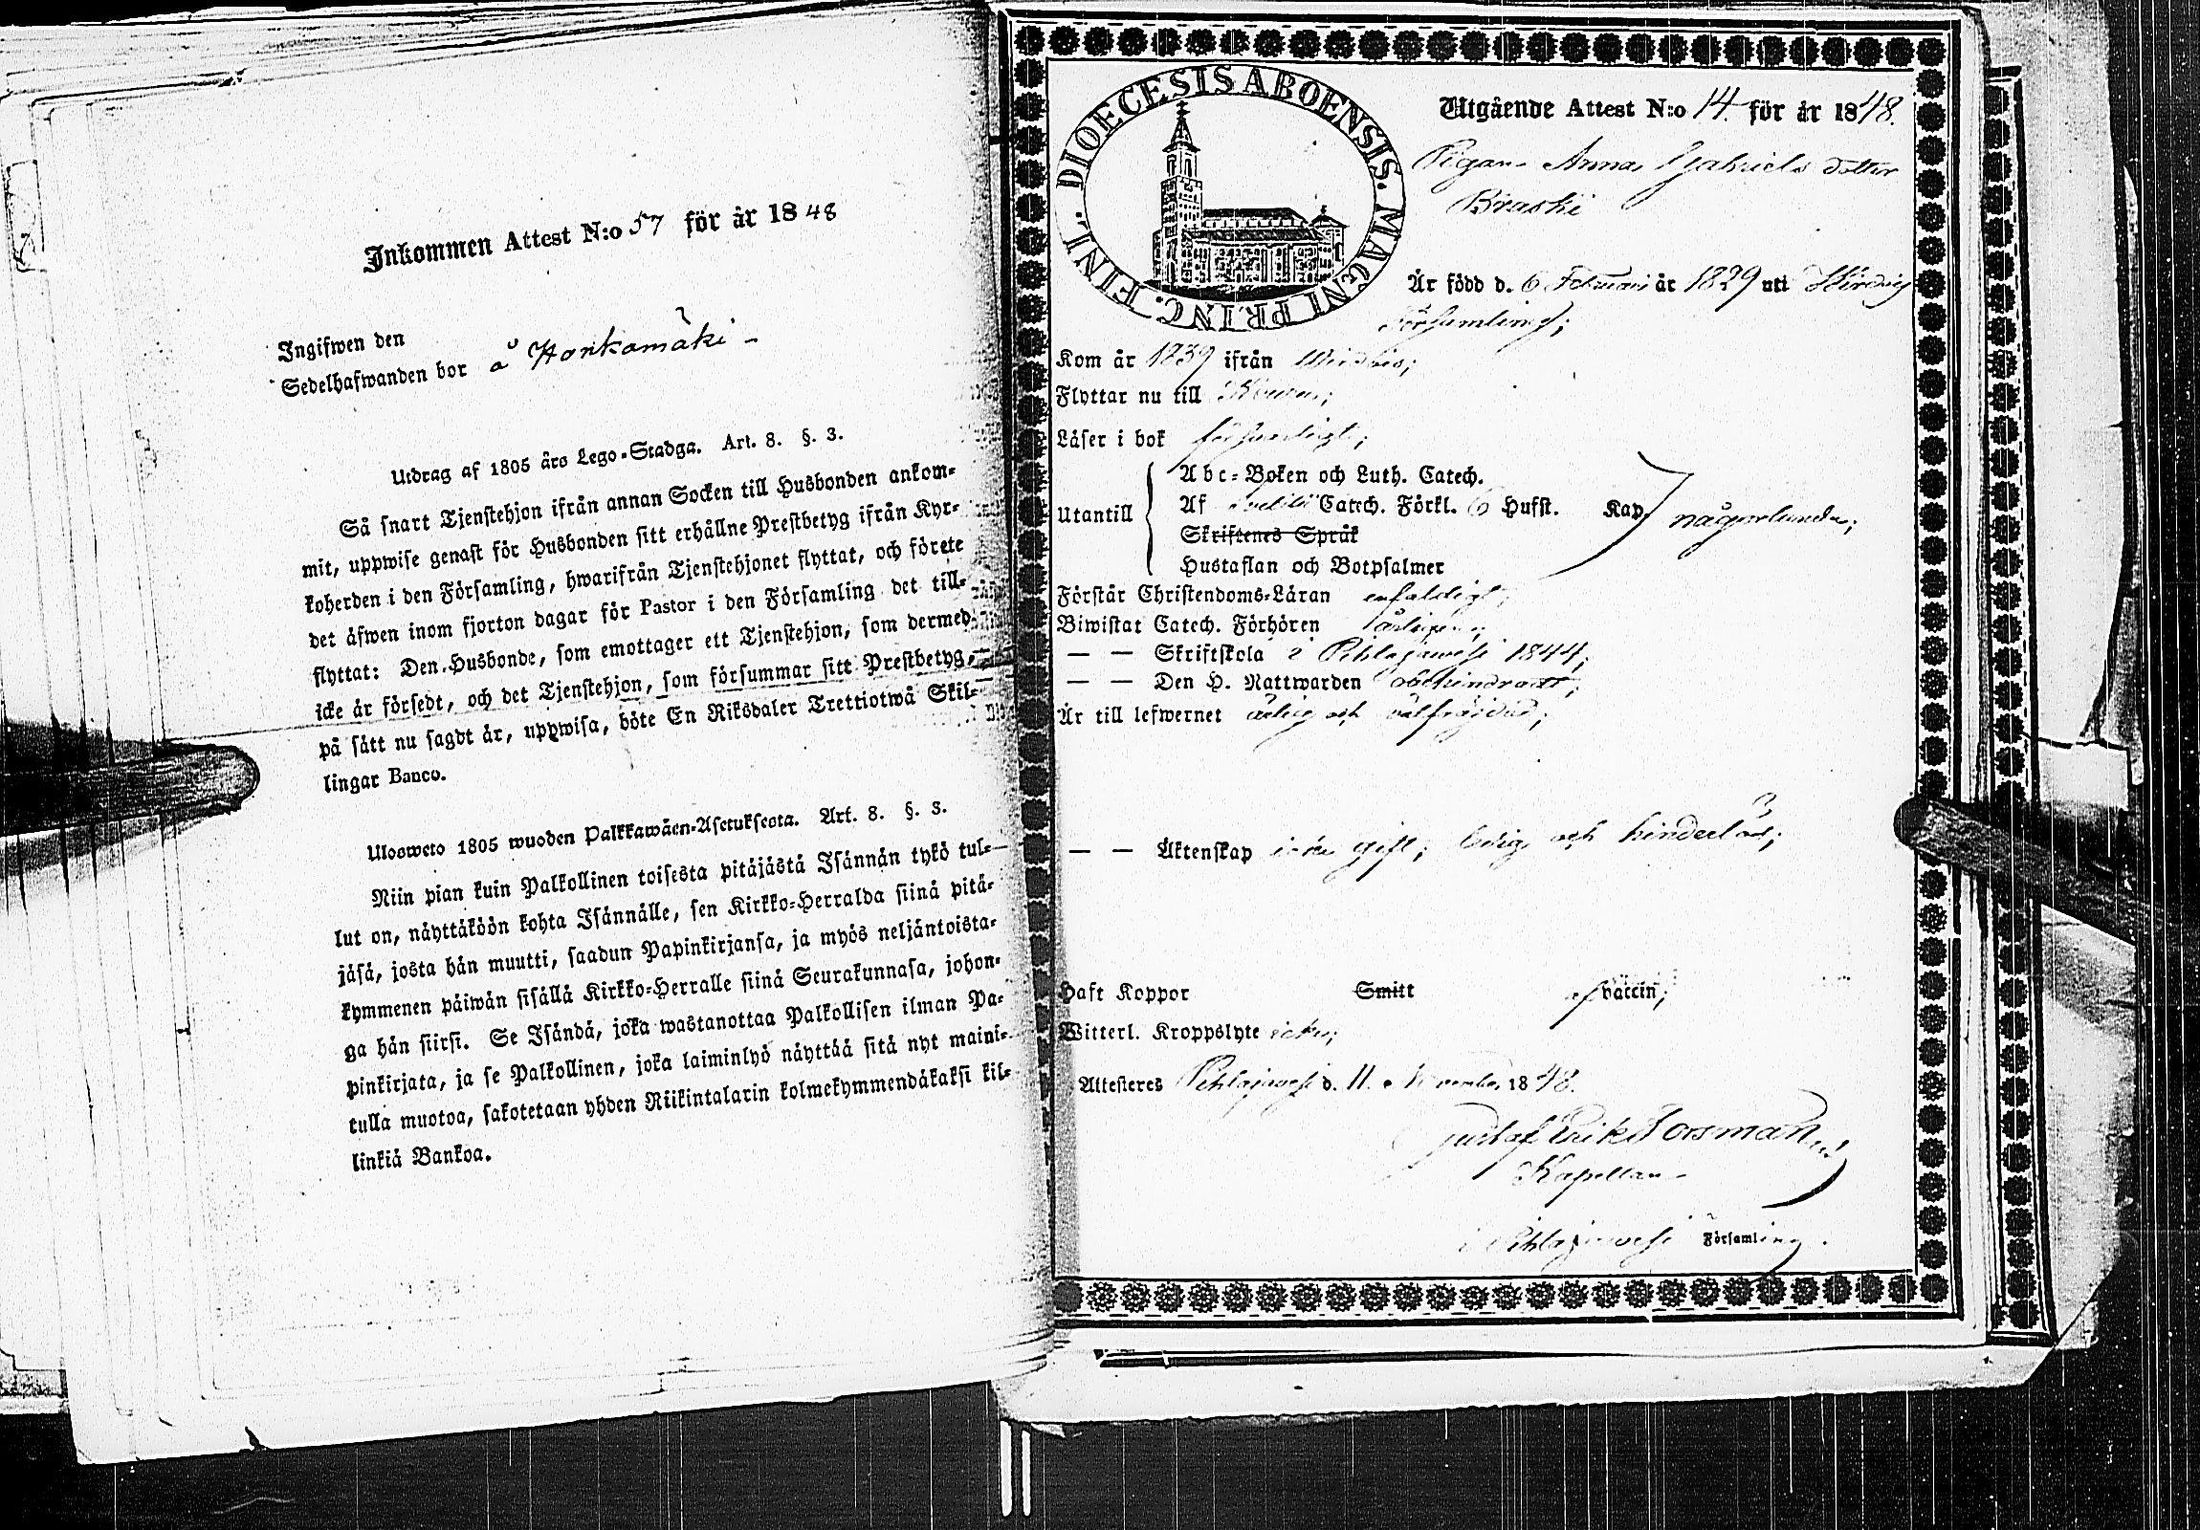 Inkommen Attest N:o 57 för år 1848
Ingifwen den
Sedelhafwanden bor å Honkamäki -
Utdrag af 1805 års Lego-Stadga. Art. 8. §. 3.
Så snart Tjenstehjon ifrån annan Socken till Husbonden ankom-
mit, uppwise genast för Husbonden sitt erhållne Prestbetyg ifrån Kyr-
koherden i den Församling, hwarifrån Tjenstehjonet flyttat, och förete
det äfwen inom fjorton dagar för Pastor i den Församling det till-
flyttat: Den Husbonde, som emottager ett Tjenstehjon, som dermed
icke är försedt, och det Tjenstehjon, som försummar sitt Prestbetyg,
på sätt nu sagdt är, uppwisa, böte En Riksdaler Trettiotwå Skil-
lingar Banco.
Ulosweto 1805 wuoden Palkkawäen-Asetuksesta. Art. 8. §. 3.
Niin pian kuin Palkollinen toisesta pitäjästä Isännän tykö tul-
lut on, näyttäköön kohta Isännälle, sen Kirkko-Herralda siinä pitä-
jäsä, josta hän muutti, saadun Papinkirjansa, ja myös neljäntoista-
kymmenen päiwän sisällä Kirkko-Herralle siinä Seurakunnasa, johon-
ga hän siirsi. Se Isändä, joka wastanottaa Palkollisen ilman Pa-
pinkirjata, ja se Palkollinen, joka laiminlyö näyttää sitä nyt maini-
tulla muotoa, sakotetaan yhden Riikintalarin kolmekymmendäkaksi kil-
linkiä Bankoa.
DIOECESIS ABOENSIS. MAGNI PRINC. FINL.
Utgående Attest N:o 14 för år 1848.
Pigan Anna Gabriels dotter
Braski
Är född d. 6 Februari år 1829 uti
Församling;
Kom år 1839 ifrån
Flyttar nu till
Läser i bok försvarligt;
Utantill
Abc-Boken och Luth. Catech.
Af Catech. Förkl. 6 Hufst. Kap
Skriftenes Språk
Hustaflan och Botpsalmer
någorlunda;
Förstår Christendoms-Läran enfaldigt;
Biwistat Catech. Förhören årligen;
— — Skriftskola i Pihlajawesi 1844;
— — Den H. Nattwarden obehindradt;
Är till lefwernet ärlig och välfrejdad;
— — Äktenskap icke gift; ledig och hinderlös;
Haft Koppor Smitt af vaccin;
Witterl. Kroppslyte icke;
Attesteres Pihlajawesi d. 11 November 1848.
Gustaf Erik Forsman
Kapellan
i Pihlajawesi Församling.